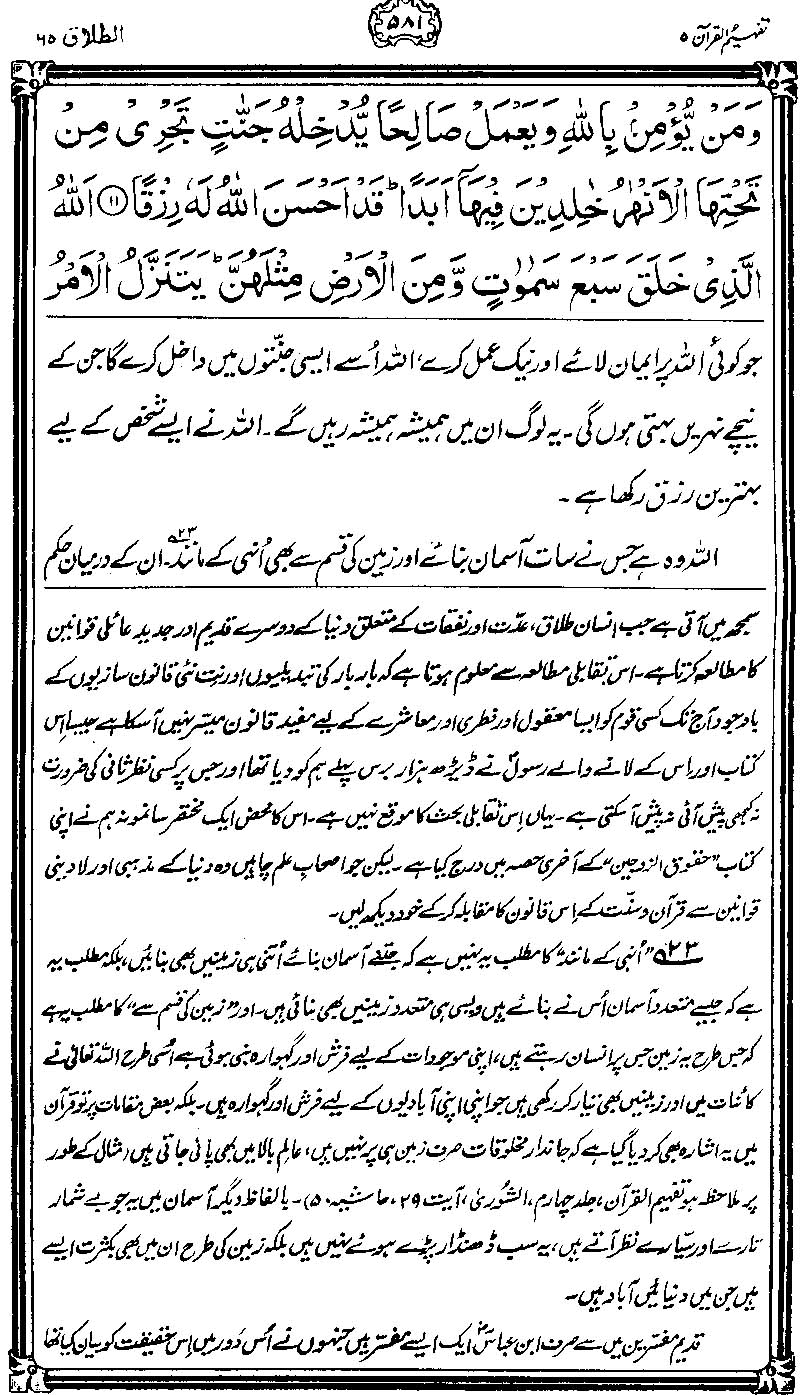 تفہیم القرآن ۵
۵۸۱
الطلاق ۶۵
وَمَنْ يُّؤْمِنْۢ بِاللّٰهِ وَيَعْمَلْ صَالِحًا يُّدْخِلْهُ جَنّٰتٍ تَجْرِىْ مِنْ
تَحْتِهَا الْاَنْهٰرُ خٰلِدِيْنَ فِيْهَآ اَبَدًا ؕ قَدْ اَحْسَنَ اللّٰهُ لَهٗ رِزْقًا ﴿۱۱﴾ اَللّٰهُ
الَّذِىْ خَلَقَ سَبْعَ سَمٰوٰتٍ وَّمِنَ الْاَرْضِ مِثْلَهُنَّ ؕ يَتَنَزَّلُ الْاَمْرُ
جو کوئی اللہ پر ایمان لائے اور نیک عمل کرے، اللہ اُسے ایسی جنّتوں میں داخل کرے گا جن کے
نیچے نہریں بہتی ہوں گی۔ یہ لوگ ان میں ہمیشہ ہمیشہ رہیں گے۔ اللہ نے ایسے شخص کے لیے
بہترین رزق رکھا ہے۔
اللہ وہ ہے جس نے سات آسمان بنائے اور زمین کی قسم سے بھی اُنہی کے مانند۔۲۳ ان کے درمیان حکم
سمجھ میں آتی ہے جب انسان طلاق، عدّت اور نفقات کے متعلق دنیا کے دوسرے قدیم اور جدید عائلی قوانین
کا مطالعہ کرتا ہے۔ اس تقابلی مطالعہ سے معلوم ہوتا ہے کہ بار بار کی تبدیلیوں اور نِت نئی قانون سازیوں کے
باوجود آج تک کسی قوم کو ایسا معقول اور فطری اور معاشرے کے لیے مفید قانون میسّر نہیں آسکا ہے جیسا اِس
کتاب اور اس کے لانے والے رسولؐ نے ڈیڑھ ہزار برس پہلے ہم کو دیا تھا اور جس پر کسی نظر ثانی کی ضرورت
نہ کبھی پیش آئی نہ پیش آسکتی ہے۔ یہاں اِس تقابلی بحث کا موقع نہیں ہے۔ اس کا محض ایک مختصر سا نمونہ ہم نے اپنی
کتاب ”حقوق الزوجین“ کے آخری حصہ میں درج کیا ہے۔ لیکن جو اصحابِ علم چاہیں وہ دنیا کے مذہبی اور لا دینی
قوانین سے قرآن و سنّت کے اِس قانون کا مقابلہ کر کے خود دیکھ لیں۔
۲۳ ”اُنہی کے مانند“ کا مطلب یہ نہیں ہے کہ جتنے آسمان بنائے اُتنی ہی زمینیں بھی بنائیں، بلکہ مطلب یہ
ہے کہ جیسے متعدد آسمان اُس نے بنائے ہیں ویسی ہی متعدد زمینیں بھی بنائی ہیں۔ اور ”زمین کی قسم سے“ کا مطلب یہ ہے
کہ جس طرح یہ زمین جس پر انسان رہتے ہیں، اپنی موجودات کے لیے فرش اور گہوارہ بنی ہوئی ہے اُسی طرح اللہ تعالیٰ نے
کائنات میں اور زمینیں بھی تیار کر رکھی ہیں جو اپنی اپنی آبادیوں کے لیے فرش اور گہوارہ ہیں۔ بلکہ بعض مقامات پر تو قرآن
میں یہ اشارہ بھی کر دیا گیا ہے کہ جاندار مخلوقات صرف زمین ہی پر نہیں ہیں، عالمِ بالا میں بھی پائی جاتی ہیں (مثال کے طور
پر ملاحظہ ہو تفہیم القرآن، جلد چہارم، الشُّوریٰ، آیت ۲۹، حاشیہ ۵۰)۔ بالفاظِ دیگر آسمان میں یہ جو بے شمار
تارے اور سیّارے نظر آتے ہیں، یہ سب ڈھنڈار پڑے ہوئے نہیں ہیں بلکہ زمین کی طرح ان میں بھی بکثرت ایسے
ہیں جن میں دنیائیں آباد ہیں۔
قدیم مفسّرین میں سے صرف ابن عباسؓ ایک ایسے مفسّر ہیں جنہوں نے اُس دَور میں اِس حقیقت کو بیان کیا تھا